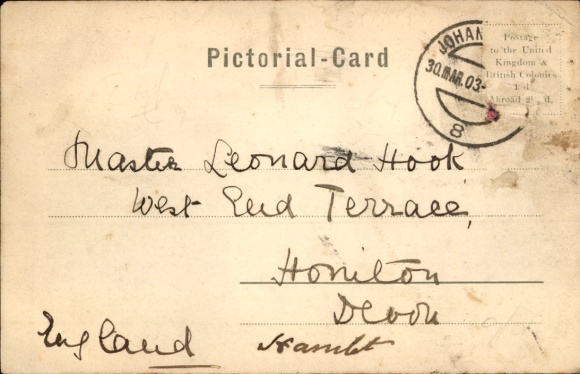 Pictorial-Card
JOHAN
30.MAR.03
8
Postage
to the United
Kingdom &
British Colonies
1d.
Abroad
Master Leonard Hook
West End Terrace,
Honiton
Devon
England